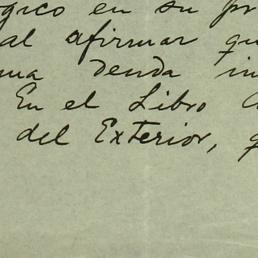 gico en su pr
al afirmar qu
una deuda in
En el Libro
del Exterior, q